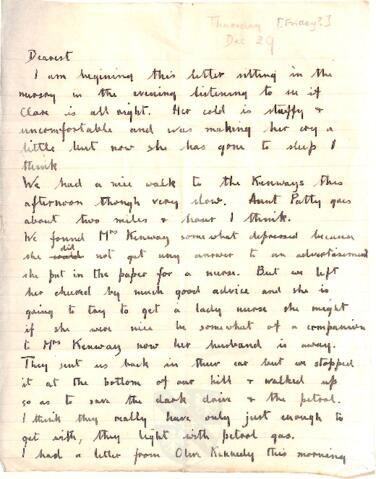 Thursday [Friday?]
Dec 29
Dearest
I am begining this letter sitting in the
nursery in the evening listening to see if
Clare is all right. Her cold is stuffy &
uncomfortable and was making her cry a
little but now she has gone to sleep I
think
We had a nice walk to the Kenways this
afternoon though very slow. Aunt Patty goes
about two miles & hour I think.
We found Mrs Kenway somewhat depressed because
she did not get any answer to an advertisement
she put in the paper for a nurse. But we left
her cheered by much good advice and she is
going to try to get a lady nurse she might
if she were nice be somewhat of a companion
to Mrs Kenway now her husband is away.
They sent us back in their car but we stopped
it at the bottom of our hill & walked up
so as to save the dark drive & the petrol.
I think they really have only just enough to
get with, they light with petrol gas.
I had a letter from Kennedy this morning